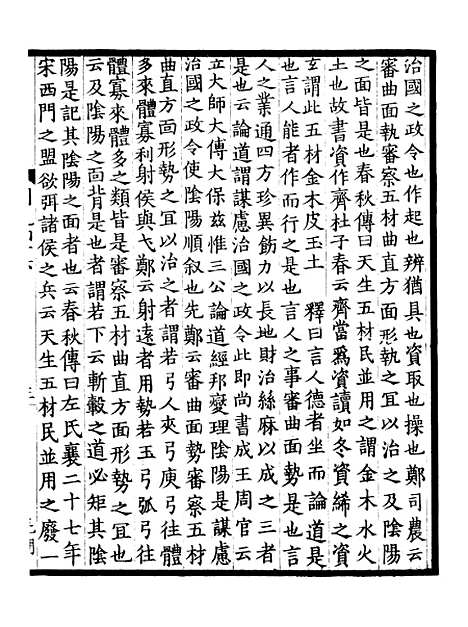 治國之政令也作起也辨猶具也資取也操也鄭司農云
審曲面執審察五材曲直方面形執之宜以治之及陰陽
之面背是也春秋傳曰天生五材民並用之謂金木水火
土也故書資作齊杜子春云齊當爲資讀如冬資絺之資
玄謂此五材金木皮玉土　釋曰言人德者坐而論道是
也言人能者作而行之是也言人之事審曲面勢是也言
人之業通四方珍異飭力以長地財治絲麻以成衣
是也云論道謂謀慮治國之政令此即尚書成王周官云
立大師大傅大保兹惟三公論道經邦燮理陰陽是謀慮
治國之政令使陰陽順叙也先鄭云審曲面勢審察五材
曲直方面形勢之宜以治之者謂若弓人夾弓庾弓往體
多來體寡利射侯與弋鄭云射遠者用勢若王弓弧弓往
體寡來體多之類皆是審察五材曲直方面形勢之宜也
云及陰陽之面背是也者謂若下云斬轂之道必矩其陰
陽是記其陰陽之面者也云春秋傳曰左氏襄二十七年
宋西門之盟欲弭諸侯之兵云天生五材民並用之廢一